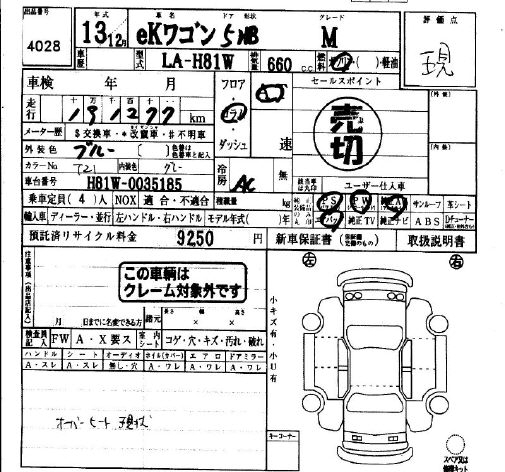 出品番号 4028
年式 13 12月 車名 eKワゴン ドア 形状 5 HB グレード M
車歴 型式 LA-H81W 排気量 660 c c 燃料 ・軽油
評価点 現
車検 年 月 フロア・コラム・ダッシュ 速 セールスポイント
走行 十万 万 千 百 十 km
メーター歴 $交換車・*改竄車・#不明車
外装色 ブルー ( ) 色替は色替車と記入
カラーNo. T21 内装色 グレー
車台番号 H81W-0035185 冷房 AC 無
売切
(外装)
(内装)
乗車定員 ( 4 ) 人 NOX 適合・不適合 積載量 kg
該当車は丸印 ユーザー仕入車
PS PW サンルーフ 革シート
輸入車 ディーラー・並行 左ハンドル・右ハンドル モデル年式( )年 エアバッグ 純正TV 純正ナビ ABS
預託済リサイクル料金 9250 円 新車保証書 取扱説明書
注意事項(出品店記入)
この車輌はクレーム対象外です
月 日までに名変できる方 諸元 長さ × 幅 × 高さ
検査員記入 FW A・X要ス 室内シート コゲ・穴・キズ・汚れ・破れ
ハンドル シート オーディオ ホイル(カバー) エアロ ドアミラー
A・スレ A・スレ 無し・穴 A・ワレ A・ワレ A・ワレ
オーバーヒート 現状
左 右
小キズ有・小U有
キーコーナー
スペア又は修理キット